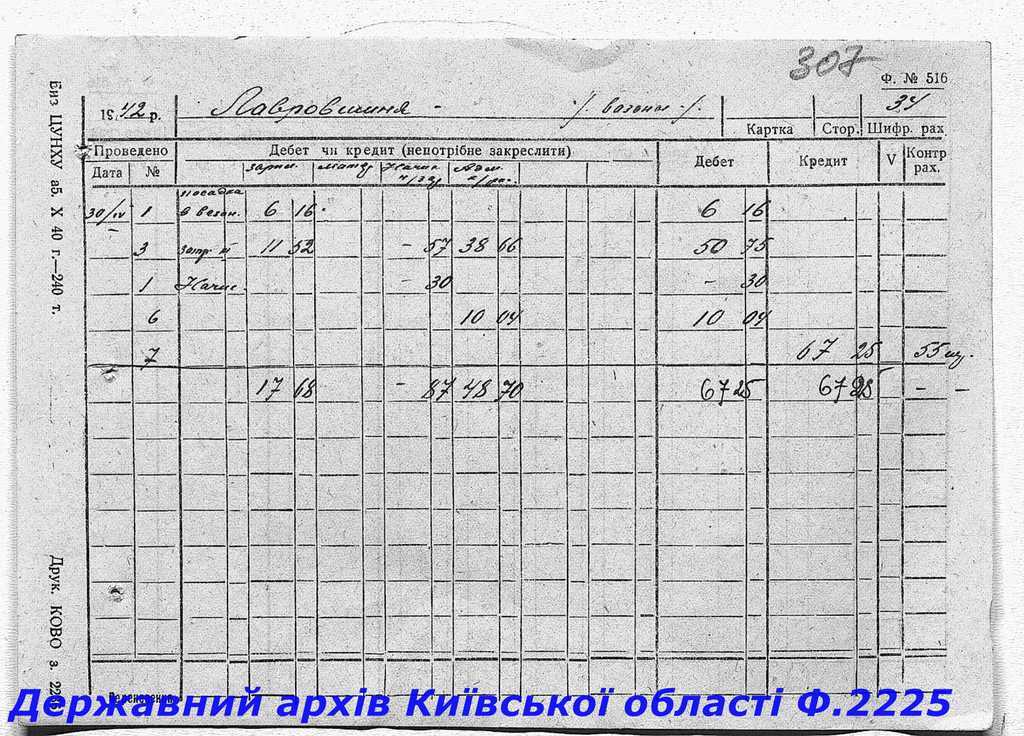 307
Ф. № 516
1942 р. Лавровишня - /. вазоны -/. 34
Картка Стор. Шифр. рах
Проведено Дебет чи кредит (непотрібне закреслити) Дебет Кредит V Контр рах.
Дата № зарпл.
посадка
30/IV 1 в вазон. 6 16 6 16
3 11 52 - 57 38 66 50 75
1 Начис. - 30 - 30
6 10 04 10 04
7 67 25 55
17 68 - 87 48 70 67 25 67 25 - -
Биз ЦУНХУ аб. X 40 г.—240 т.
Друк. КОВО з.
Державний архів Київської області Ф.2225